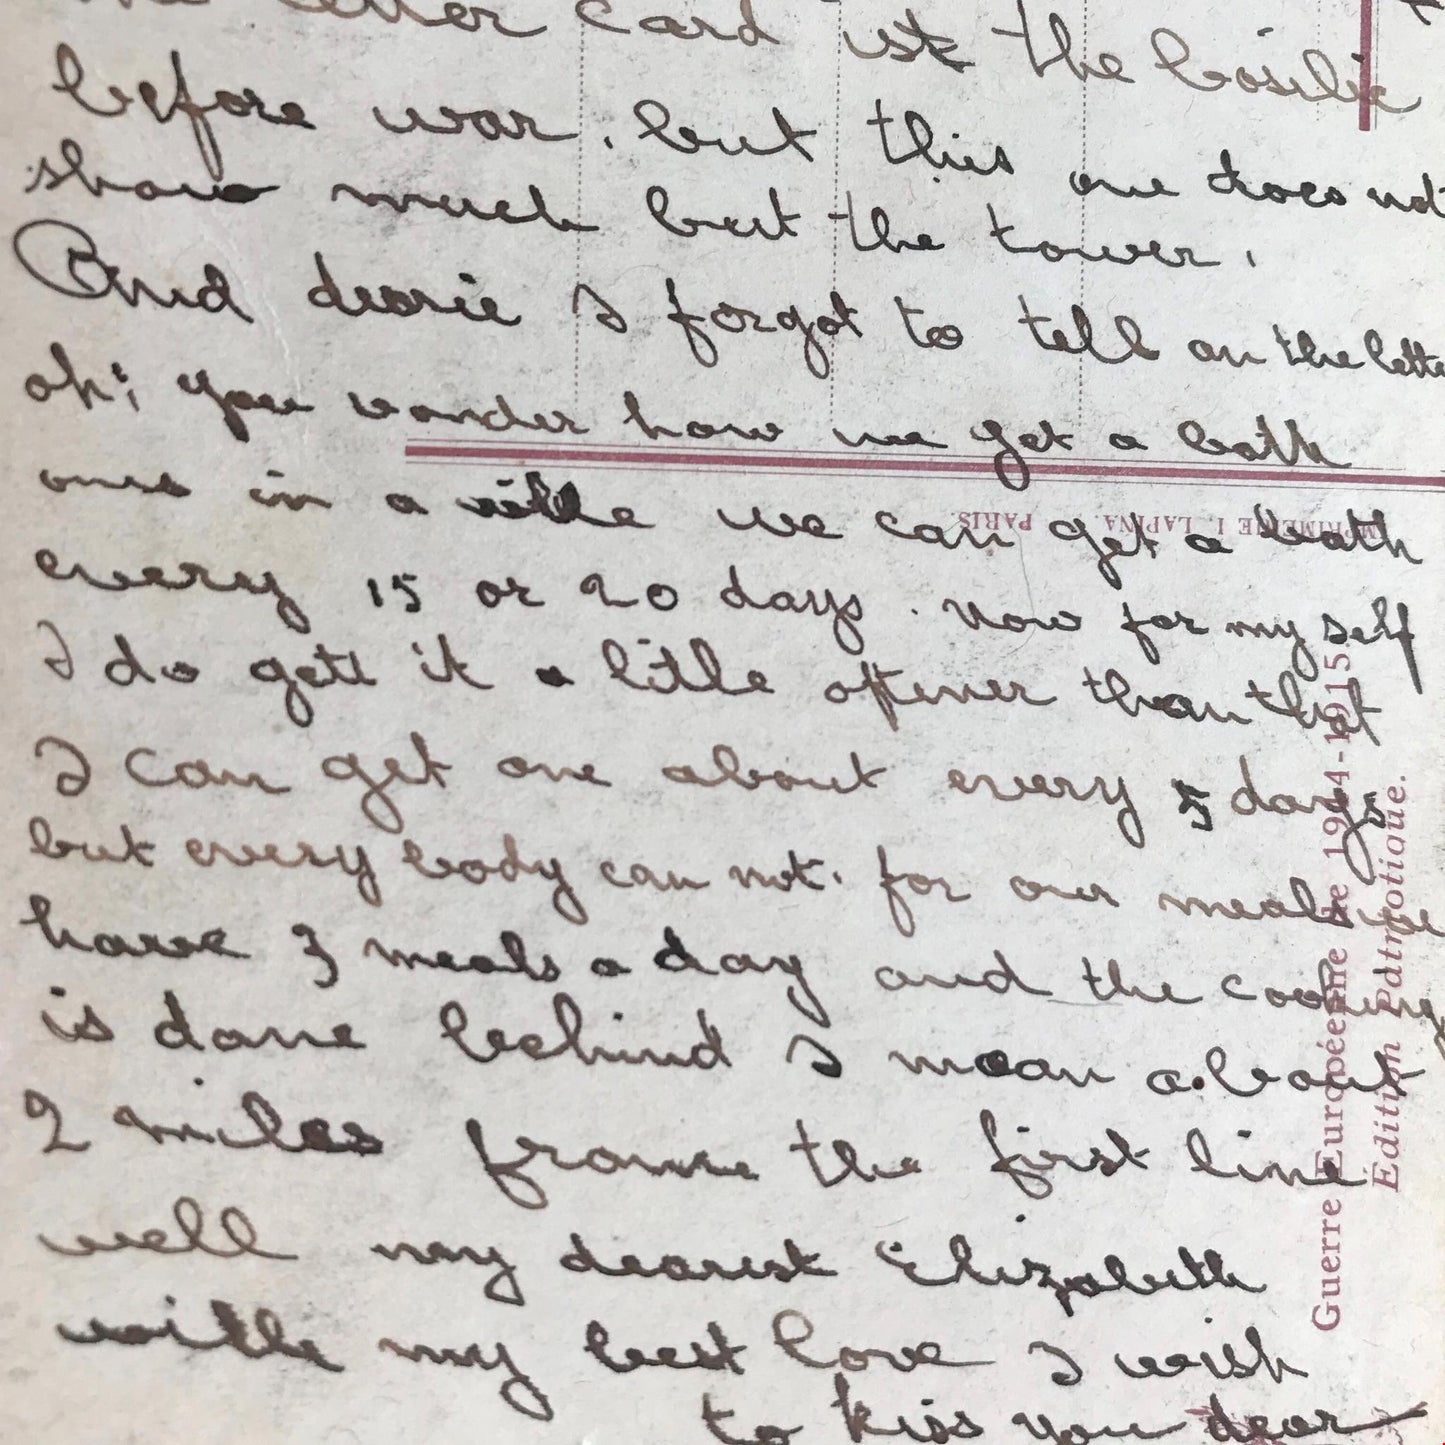 letter card is the basilic
before war. but this one does not
show much but the tower.
And dearie I forgot to tell on the lette
oh; you wonder how we get a bath
ones in a while we can get a bath
every 15 or 20 days. now for my self
I do gett it a little oftener than that
I can get one about every 5 days
but every body can not. for our meals we
have 3 meals a day and the cooking
is done behind I mean about
2 miles frome the first line
well my dearest Elizabeth
withe my best love I wish
to kiss you dear
IMPRIMERIE I. LAPINA PARIS
Guerre Européenne de 1914-1915.
Édition Patriotique.